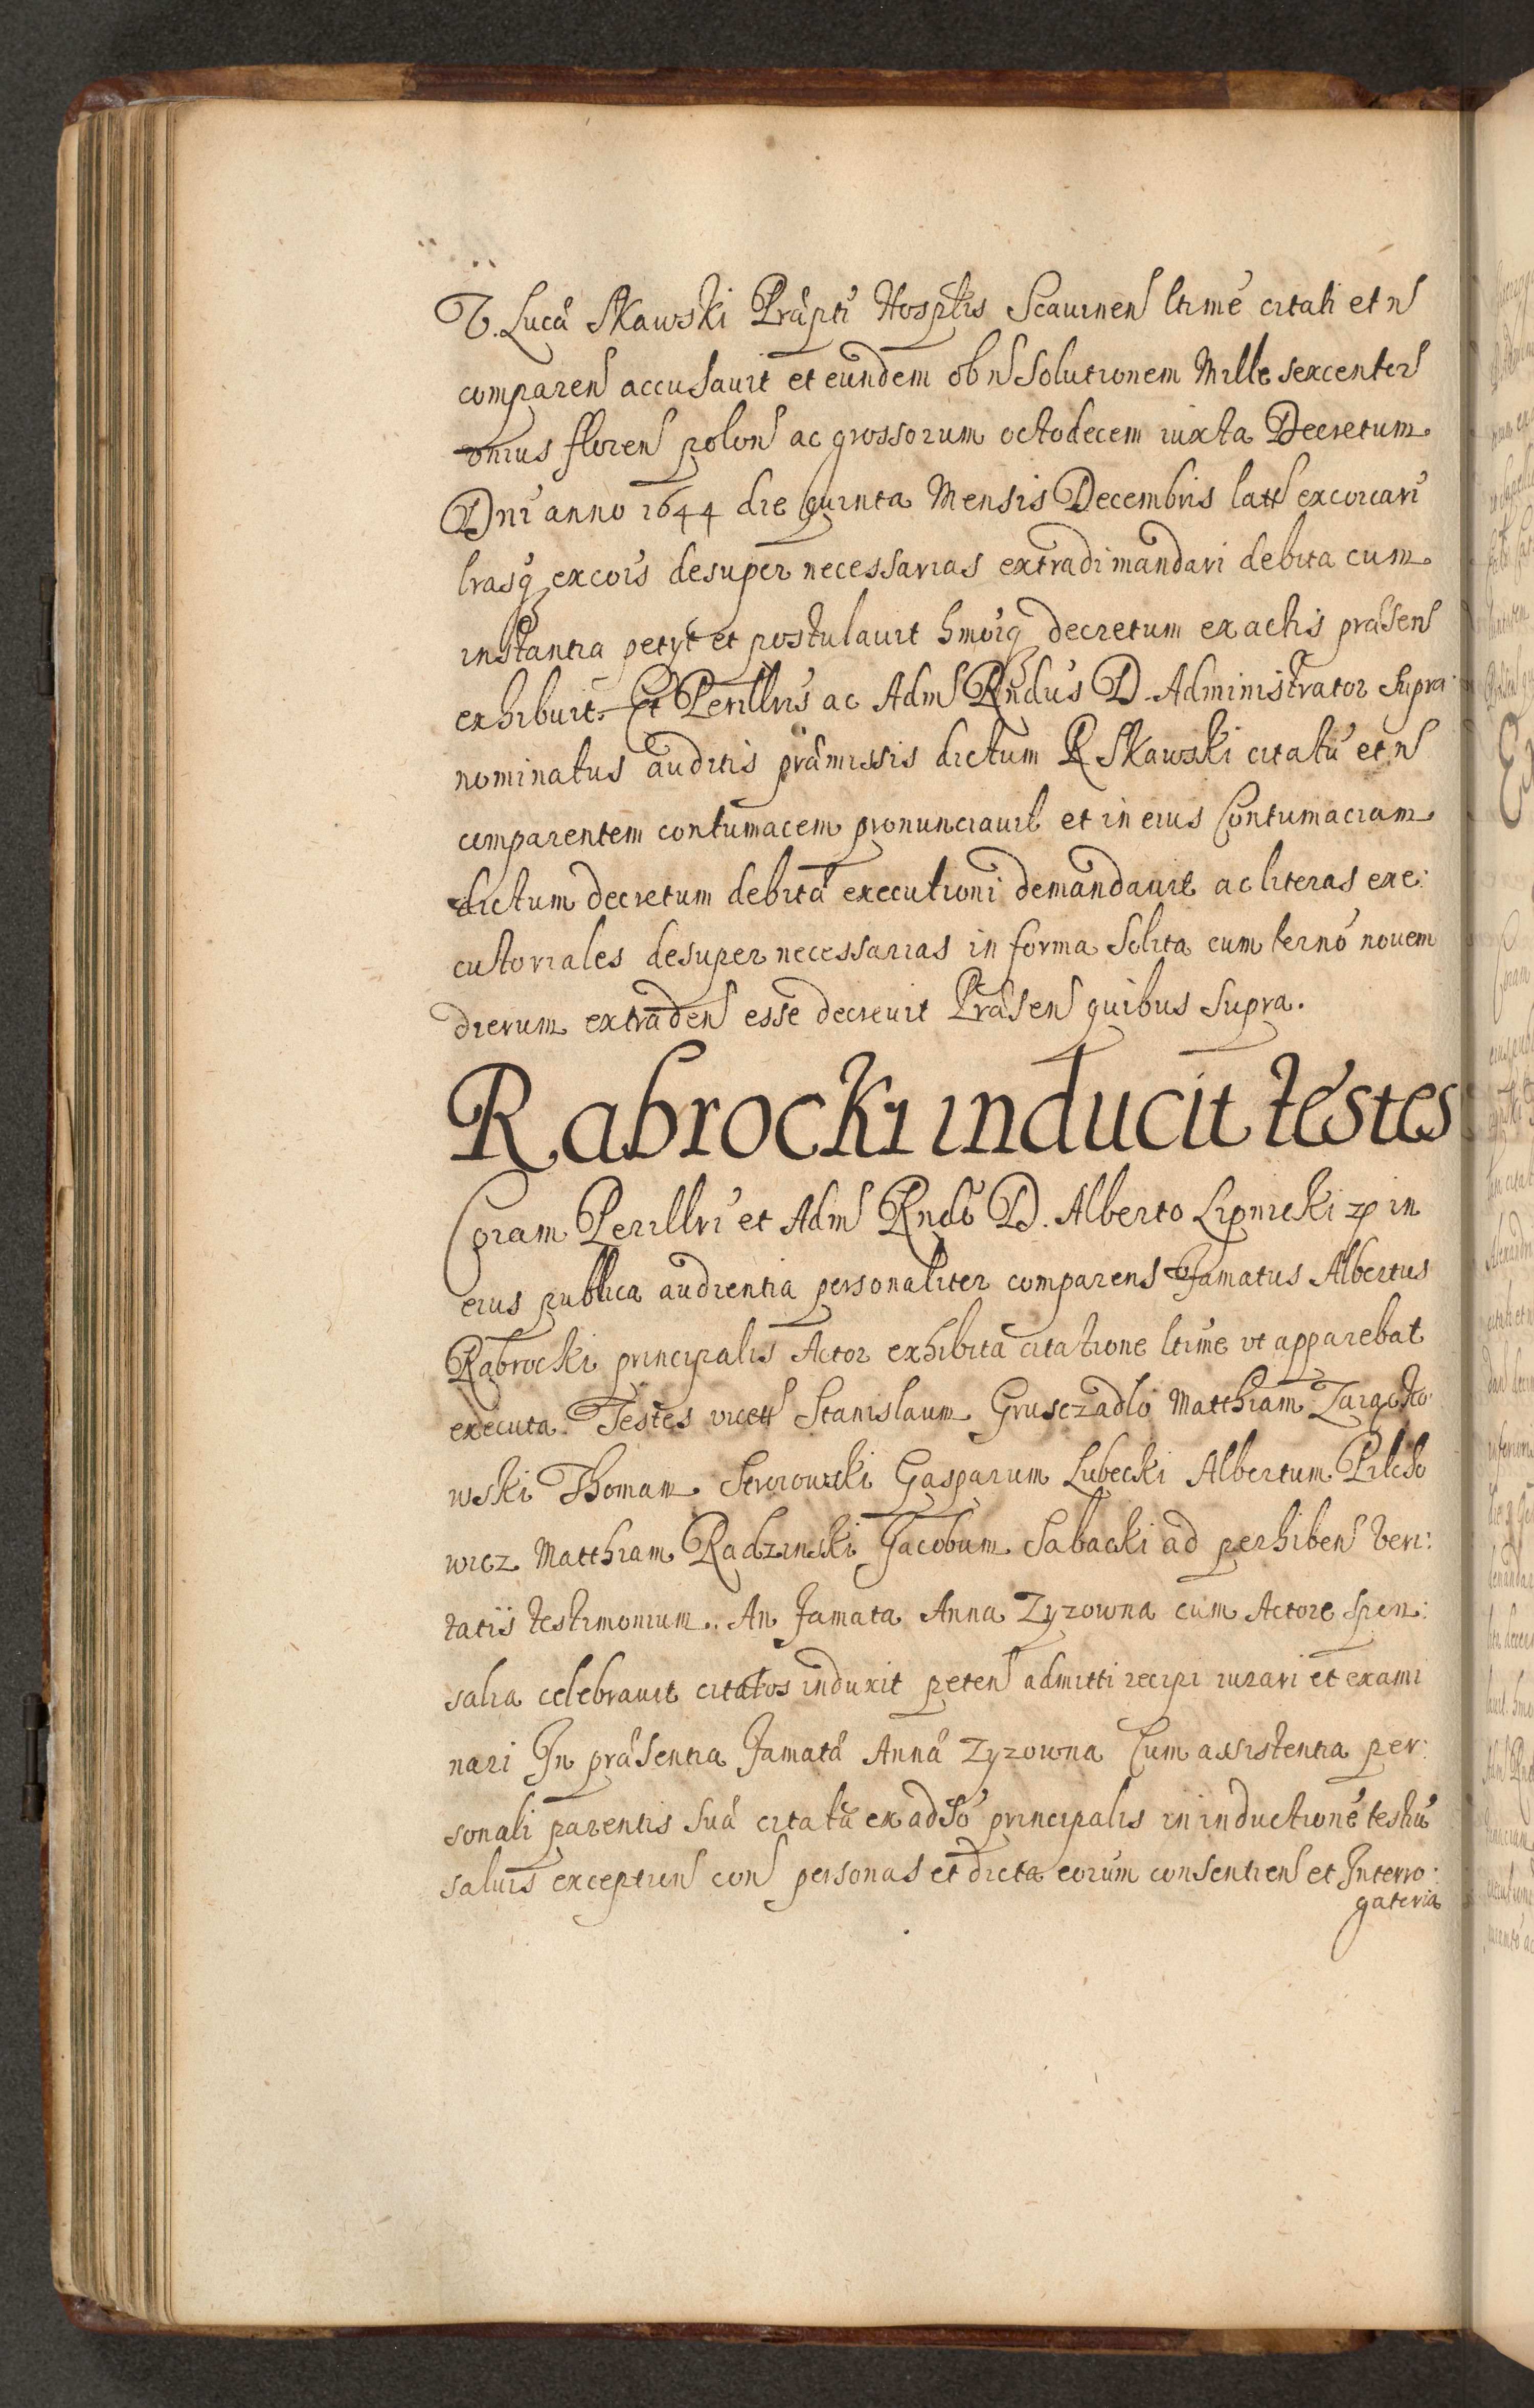 V. Lucæ Skawski Præpti Hosplis Scauinen ltime citati et n
comparen accusauit et eundem ob n solutionem Mille sexcenter
vnius floren polon ac grossorum octodecem iuxta Decretum
Dni anno 1644 die quinta Mensis Decembris latt excoicari
lrasq excois desuper necessarias extradi mandari debita cum
instantia petyt et postulauit hmoiq decretum ex actis præsen
exhibuit. Et Perillris ac Adm Rndus D. Administrator supra
nominatus auditis præmissis dictum R Skawski citatu et n
comparentem contumacem pronunciauit et in eius Contumaciam
dictum decretum debitæ executioni demandauit ac literas exe:
cutoriales desuper necessarias in forma solita cum termo nouem
dierum extraden esse decreuit Præsen quibus supra.
Rabrocki inducit testes
Coram Perillri et Adm Rndo D. Alberto Lipnicki zp in
eius publica audientia personaliter comparens Famatus Albertus
Rabrocki principalis Actor exhibita citatione ltime vt apparebat
executa. Testes vicett Stanislaum Grusczadlo Matthiam
wski Thomam Gasparum Lubecki Albertum Pilcho
wicz Matthiam Radzinski Jacobum Sabacki ad perhiben veri:
tatis testimonium. An famata Anna Zyzowna cum Actore spon:
salia celebrauit citatos induxit peten admitti recipi iurari et exami
nari In præsentia famatæ Annæ Zyzowna Cum assistentia per:
sonali parentis suæ citatæ ex adso principalis in inductione testiu
saluis exception con personas et dicta eorum consentien et Interro:
gatoria